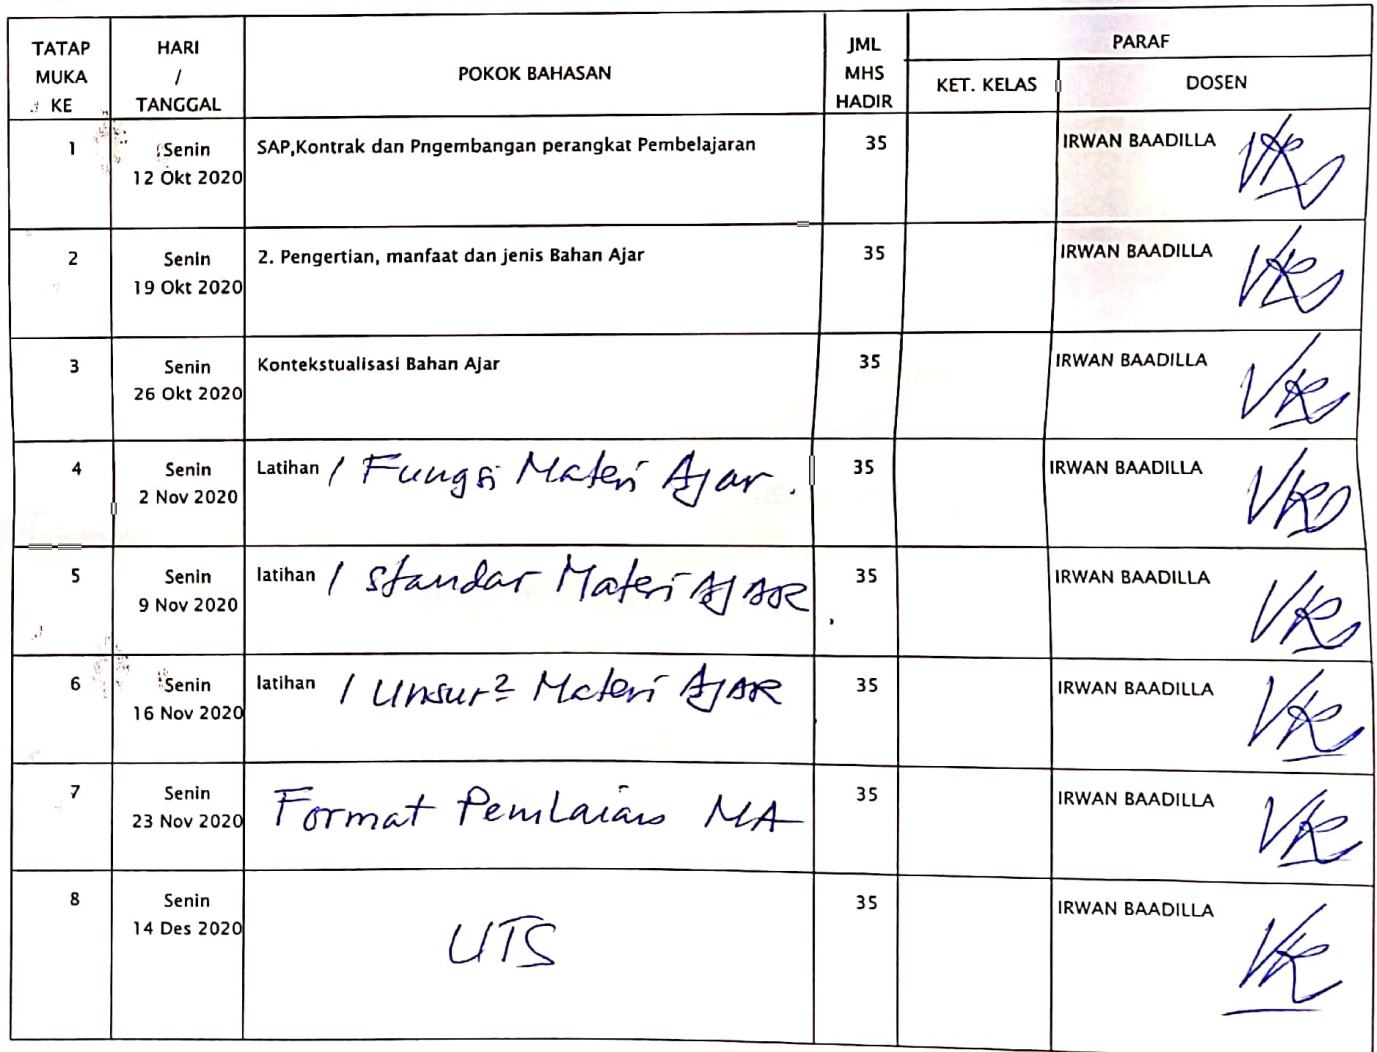 TATAP MUKA KE
HARI / TANGGAL
POKOK BAHASAN
JML MHS HADIR
PARAF
KET. KELAS
DOSEN
1
Senin
12 Okt 2020
SAP,Kontrak dan Pngembangan perangkat Pembelajaran
35
IRWAN BAADILLA
2
Senin
19 Okt 2020
2. Pengertian, manfaat dan jenis Bahan Ajar
35
IRWAN BAADILLA
3
Senin
26 Okt 2020
Kontekstualisasi Bahan Ajar
35
IRWAN BAADILLA
4
Senin
2 Nov 2020
Latihan / Fungsi Materi Ajar.
35
IRWAN BAADILLA
5
Senin
9 Nov 2020
latihan / standar Materi AJAR
35
IRWAN BAADILLA
6
Senin
16 Nov 2020
latihan / Unsur² Materi AJAR
35
IRWAN BAADILLA
7
Senin
23 Nov 2020
Format Penilaian MA
35
IRWAN BAADILLA
8
Senin
14 Des 2020
UTS
35
IRWAN BAADILLA